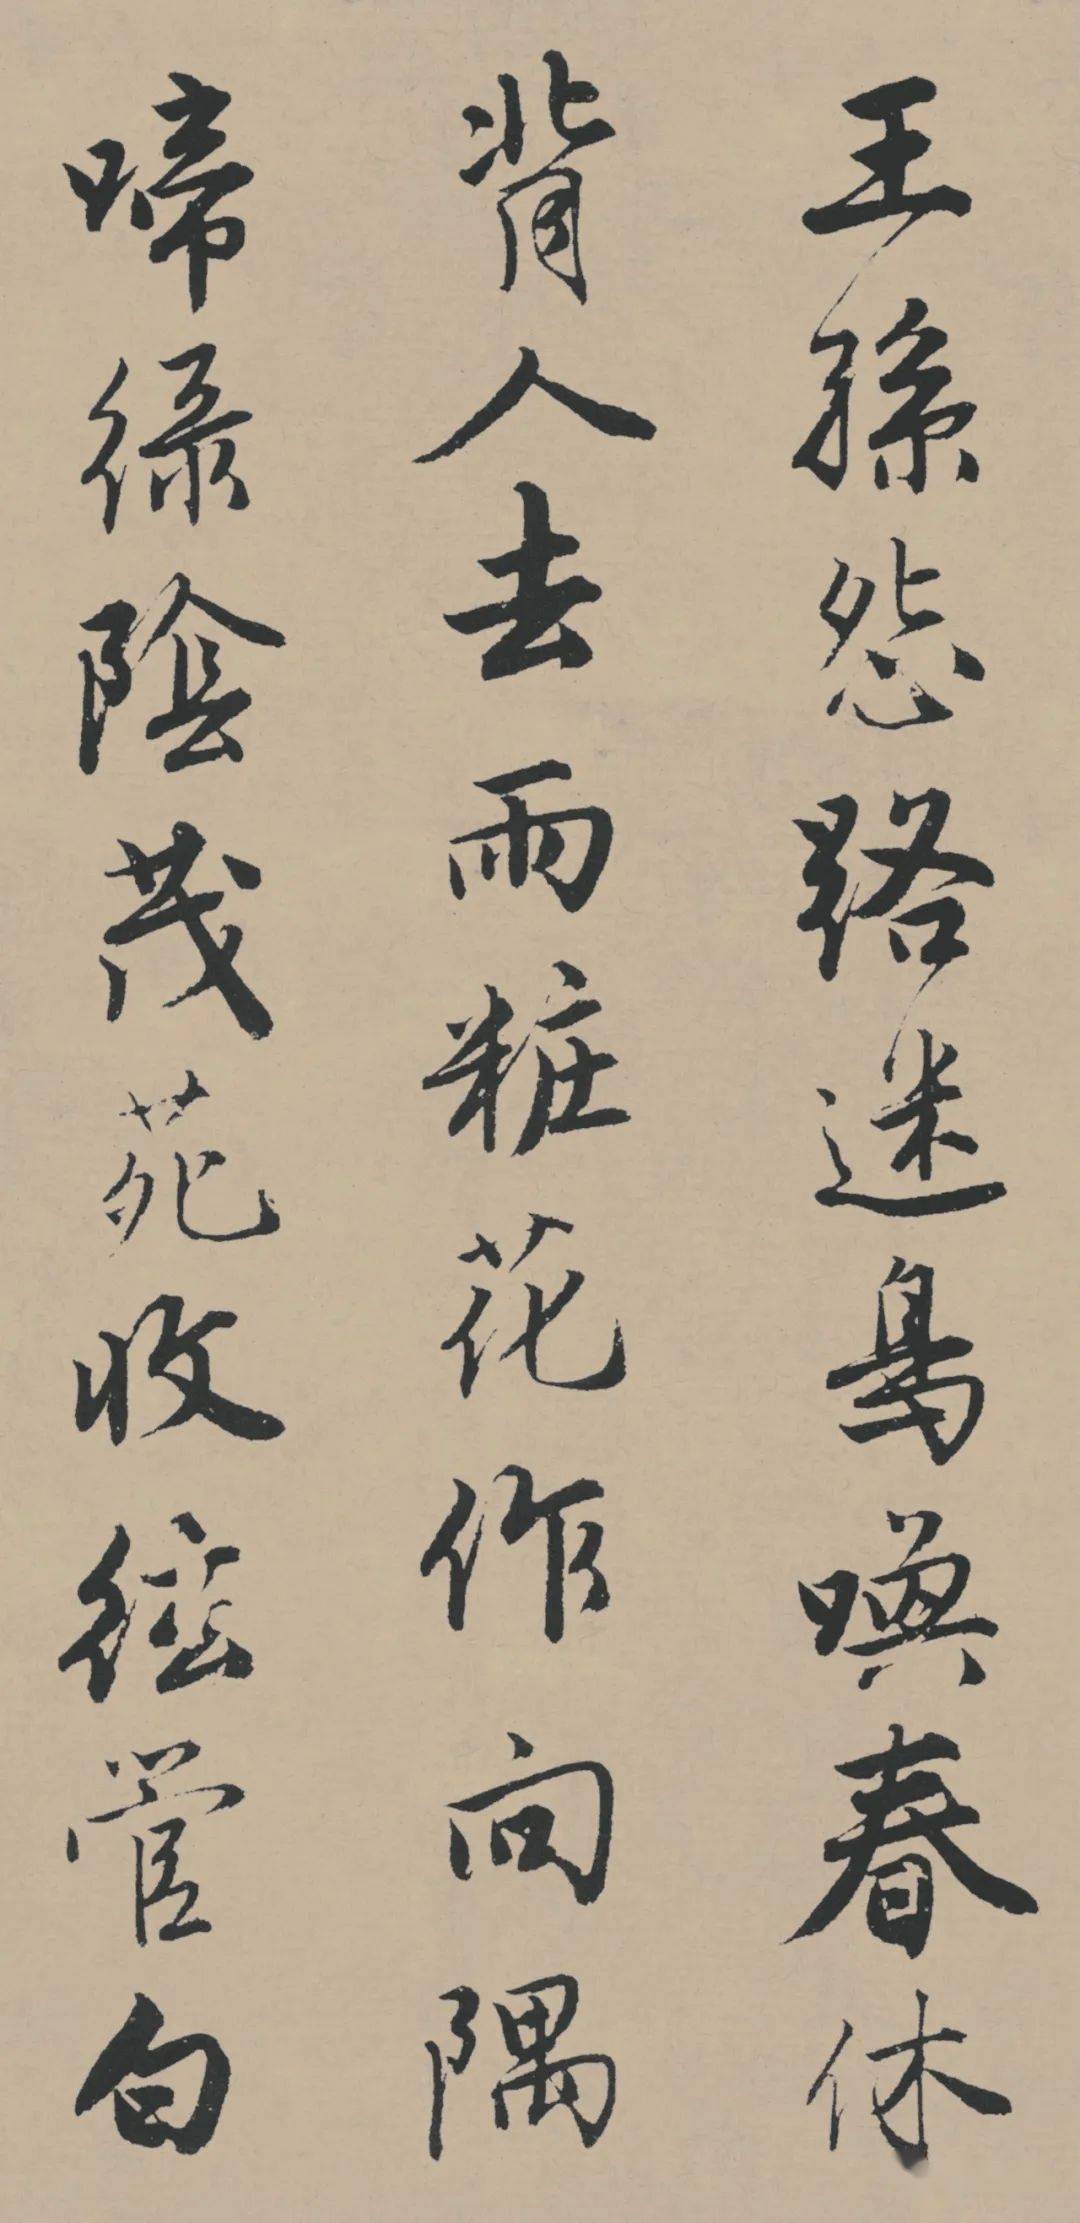 王孫怨路迷鳥喚春休
背人去雨粧花作向隅
啼綠陰茂苑收絃管白